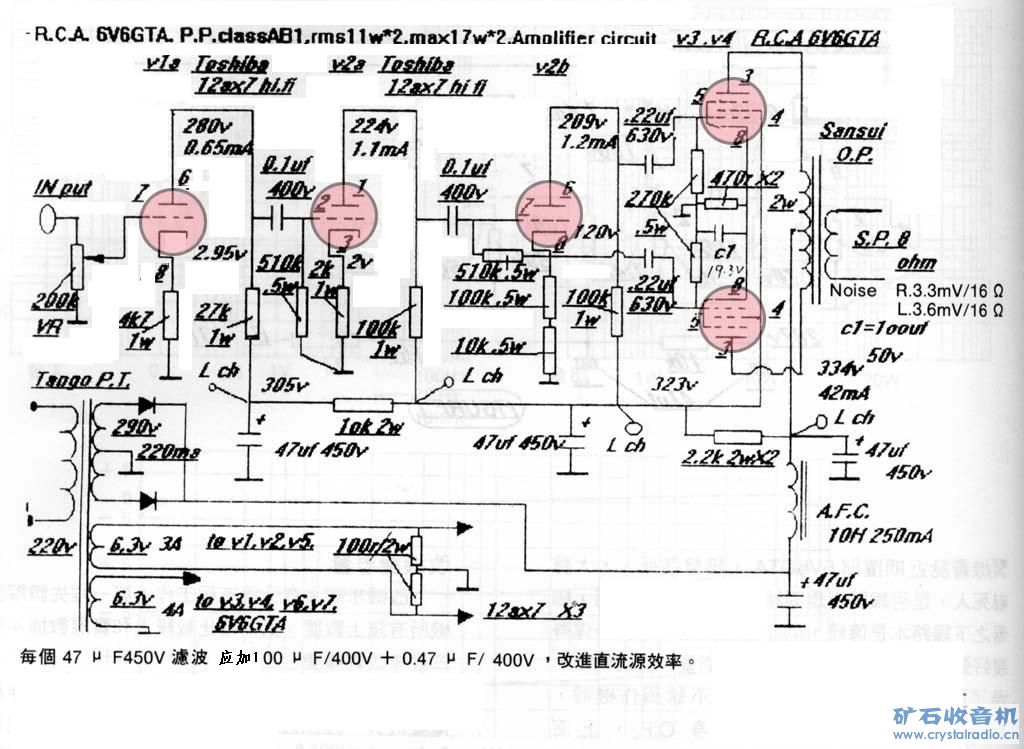 R.C.A. 6V6GTA. P.P.classAB1,rms11w*2.max17w*2.Amolifier circuit
v3.v4 R.C.A 6V6GTA
v1a Toshiba
12ax7 hi.fi
v2a Toshiba
12ax7 hi fi
v2b
280v
0.65mA
224v
1.1mA
209v
1.2mA
.22uf
630v
3
5
4
8
Sansui
O.P.
0.1uf
400v
0.1uf
400v
IN put
7
6
8
2.95v
2
1
3
2v
7
6
8
120v
270k
.5w
470r X2
2w
c1
19.3v
S.P. 8
ohm
Noise R.3.3mV/16 Ω
L.3.6mV/16 Ω
c1=100uf
50v
200k
VR
4k7
1w
27k
1w
510k
.5w
2k
1w
100k
1w
510k .5w
100k .5w
10k .5w
100k
1w
.22uf
630v
8
5
4
3
334v
42mA
Tango P.T.
L ch
305v
L ch
10k 2w
323v
L ch
L ch
290v
220ma
47uf 450v
47uf 450v
2.2k 2wX2
47uf
450v
A.F.C.
10H 250mA
220v
6.3v 3A
to v1.v2.v5.
100r/2w
47uf
450v
6.3v 4A
to v3.v4. v6.v7.
6V6GTA
12ax7 X3
每個 47 μ F450V 濾波 应加100 μ F/400V + 0.47 μ F/ 400V，改進直流源效率。
矿石收音机
www.crystalradio.cn